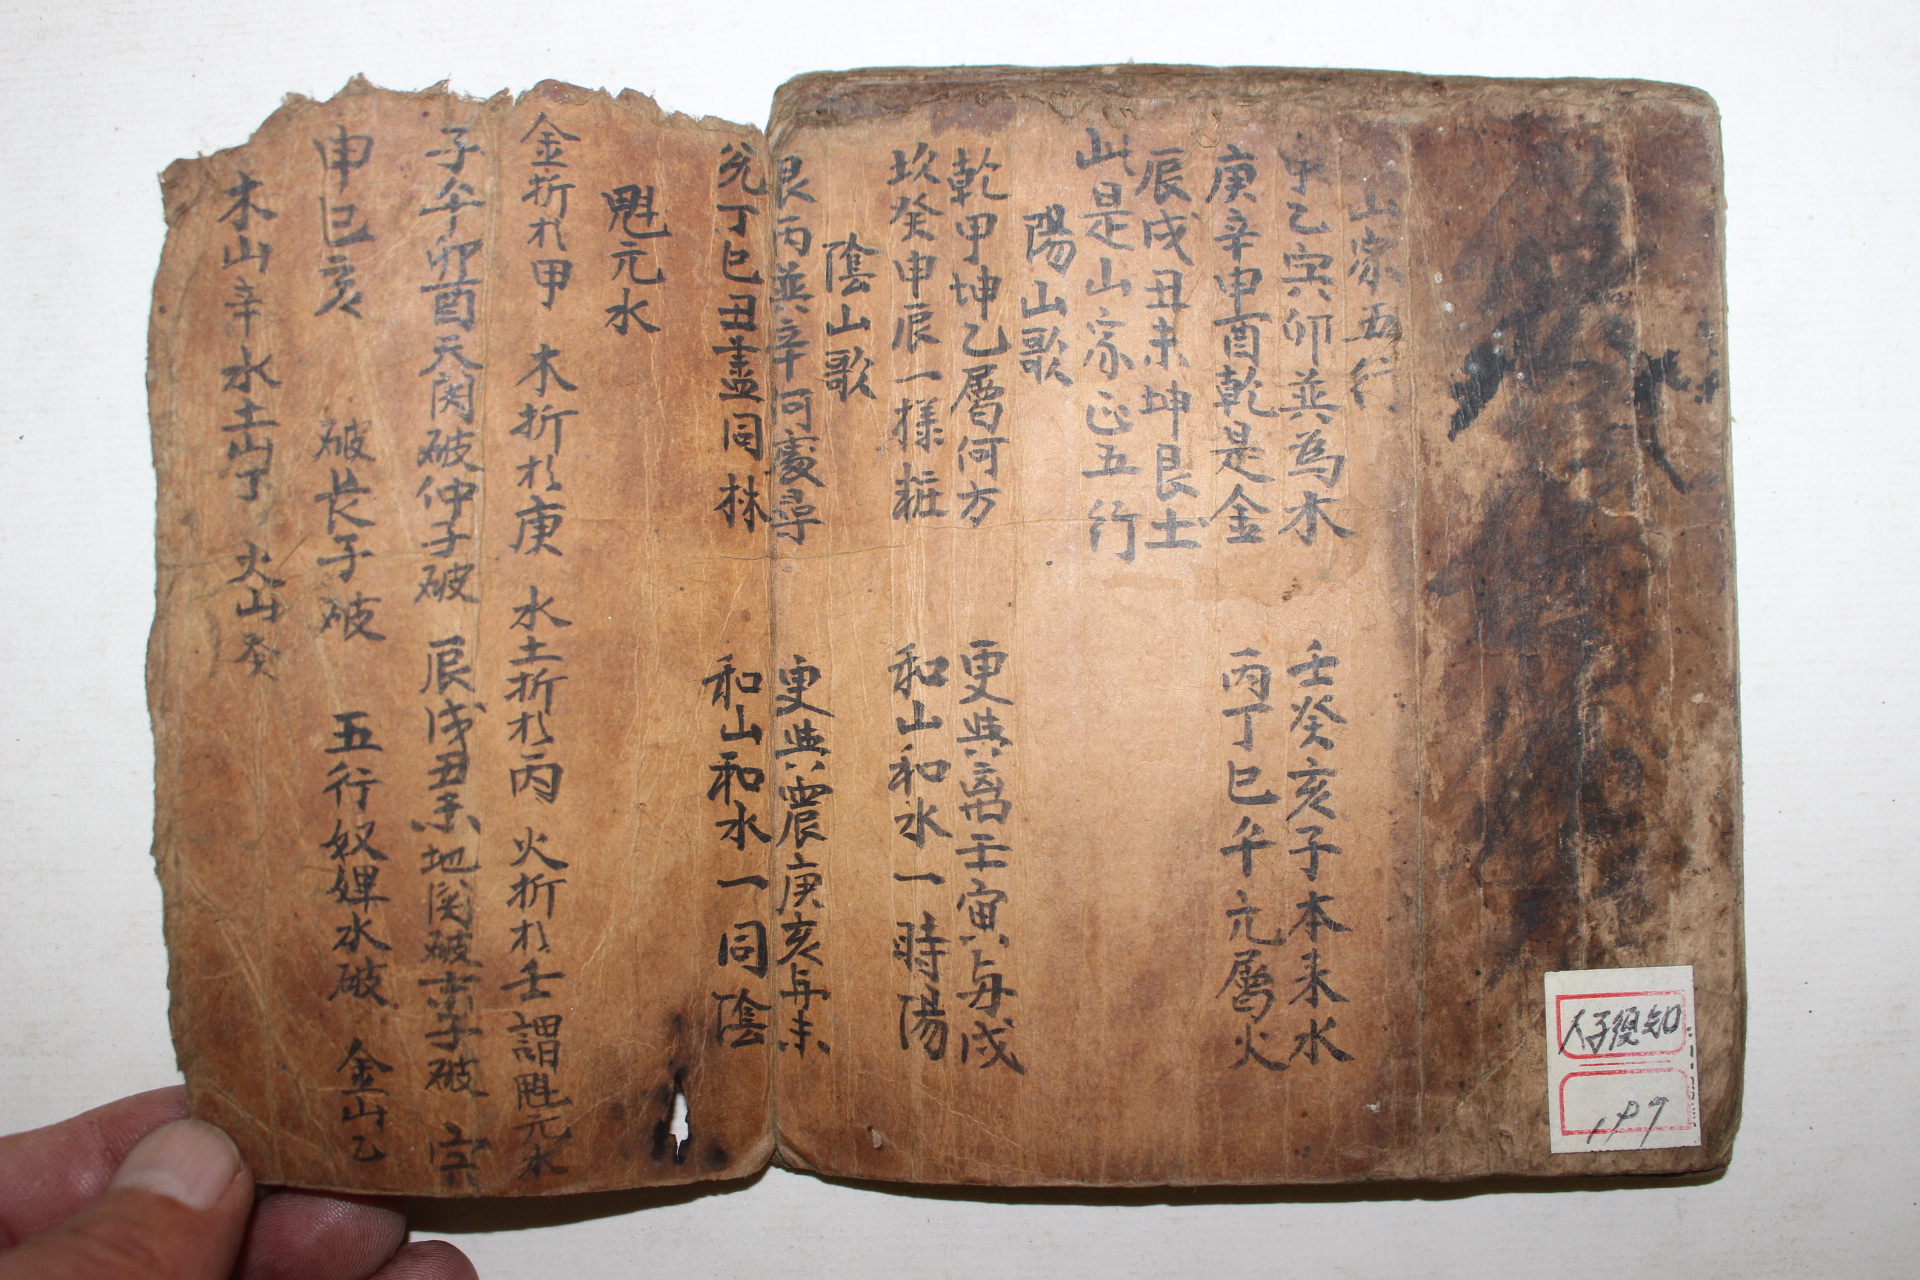 山家五行
甲乙寅卯並為木 壬癸亥子本来水
庚辛申酉乾是金 丙丁巳午元屬火
辰戌丑未坤艮土
此是山家正五行
陽山歌
乾甲坤乙屬何方 更與离壬寅与戌
坎癸申辰一樣粧 和山和水一時陽
陰山歌
艮丙並辛何處尋 更與震庚亥与未
兊丁巳丑盡同林 和山和水一同陰
魁元水
金折於甲 木折於庚 水土折於丙 火折於壬 謂魁元水
子午卯酉天関破仲子破 辰戌丑未地関破季子破 寅
申巳亥 破长子破 五行奴婢水破 金山乙
木山辛 水土山丁 火山癸
人子須知
199